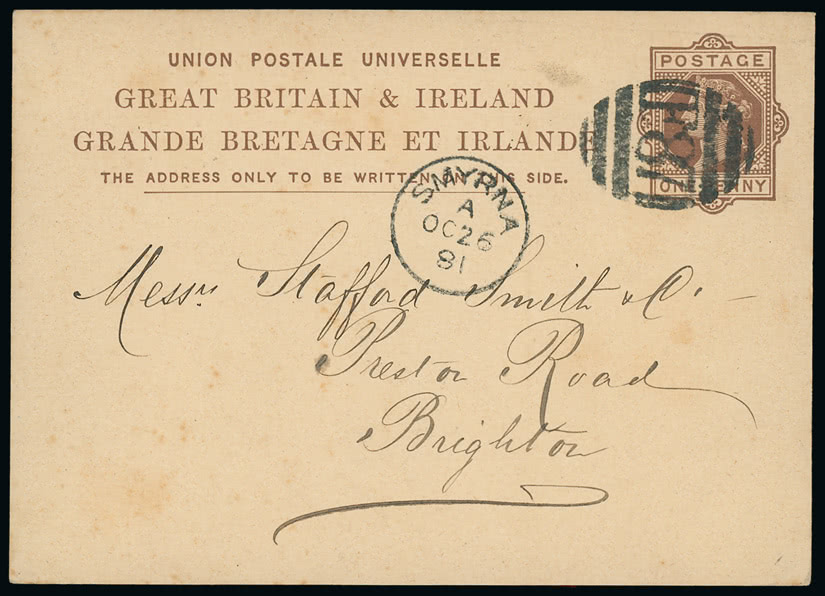 UNION POSTALE UNIVERSELLE
GREAT BRITAIN & IRELAND
GRANDE BRETAGNE ET IRLANDE
THE ADDRESS ONLY TO BE WRITTEN ON THIS SIDE.
POSTAGE
ONE PENNY
SMYRNA
A
OC 26
81
Messrs Stafford Smith & Co.
Preston Road
Brighton